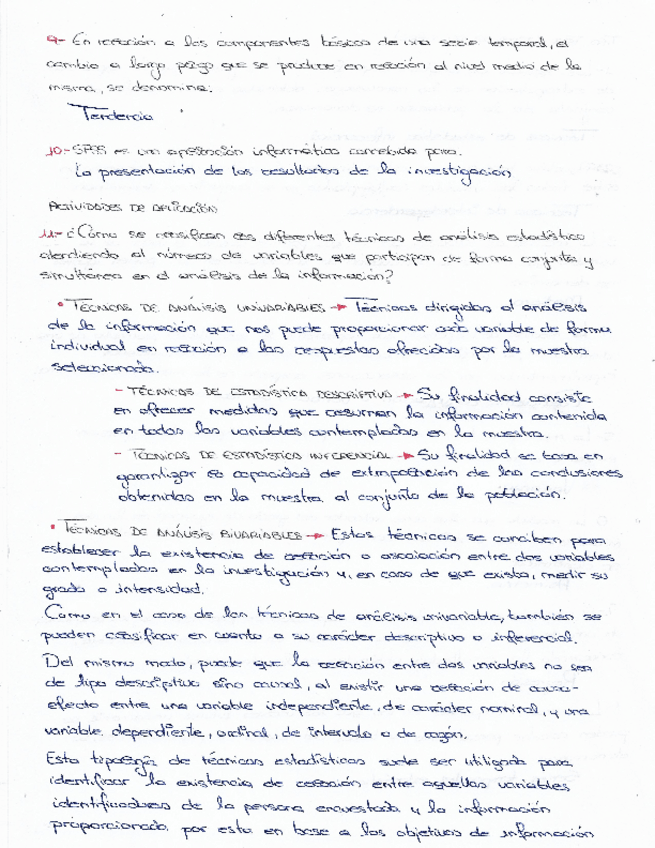 9- En relación a los componentes básicos de una serie temporal, el
cambio a largo plazo que se produce en relación al nivel medio de la
misma, se denomina:
Tendencia
10- SPSS es una aplicación informática concebida para:
La presentación de los resultados de la investigación
ACTIVIDADES DE APLICACIÓN
11- ¿Cómo se clasifican las diferentes técnicas de análisis estadístico
atendiendo al número de variables que participan de forma conjunta y
simultánea en el análisis de la información?
• TÉCNICAS DE ANÁLISIS UNIVARIABLES → Técnicas dirigidas al análisis
de la información que nos puede proporcionar cada variable de forma
individual en relación a las respuestas ofrecidas por la muestra
seleccionada.
- TÉCNICAS DE ESTADÍSTICA DESCRIPTIVA → Su finalidad consiste
en ofrecer medidas que resuman la información contenida
en todas las variables contempladas en la muestra.
- TÉCNICAS DE ESTADÍSTICA INFERENCIAL → Su finalidad se basa en
garantizar la capacidad de extrapolación de las conclusiones
obtenidas en la muestra al conjunto de la población.
• TÉCNICAS DE ANÁLISIS BIVARIABLES → Estas técnicas se conciben para
establecer la existencia de relación o asociación entre dos variables
contempladas en la investigación y, en caso de que exista, medir su
grado o intensidad.
Como en el caso de las técnicas de análisis univariable, también se
pueden clasificar en cuanto a su carácter descriptivo o inferencial.
Del mismo modo, puede que la relación entre dos variables no sea
de tipo descriptivo sino causal, al existir una relación de causa-
efecto entre una variable independiente, de carácter nominal, y una
variable dependiente, ordinal, de intervalo o de razón.
Esta tipología de técnicas estadísticas suele ser utilizada para
identificar la existencia de relación entre aquellas variables
identificadoras de la persona encuestada y la información
proporcionada por esta en base a los objetivos de información